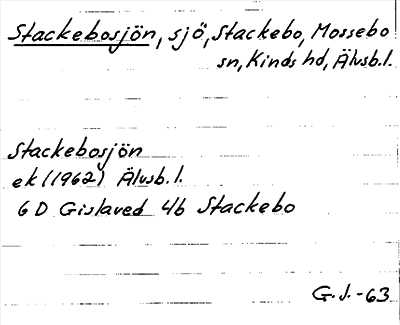 Stackebosjön, sjö, Stackebo, Mossebo
sn, Kinds hd, Älvsb.l.
Stackebosjön
ek (1962) Älvsb.l.
6 D Gislaved 4b Stackebo
G.J.-63